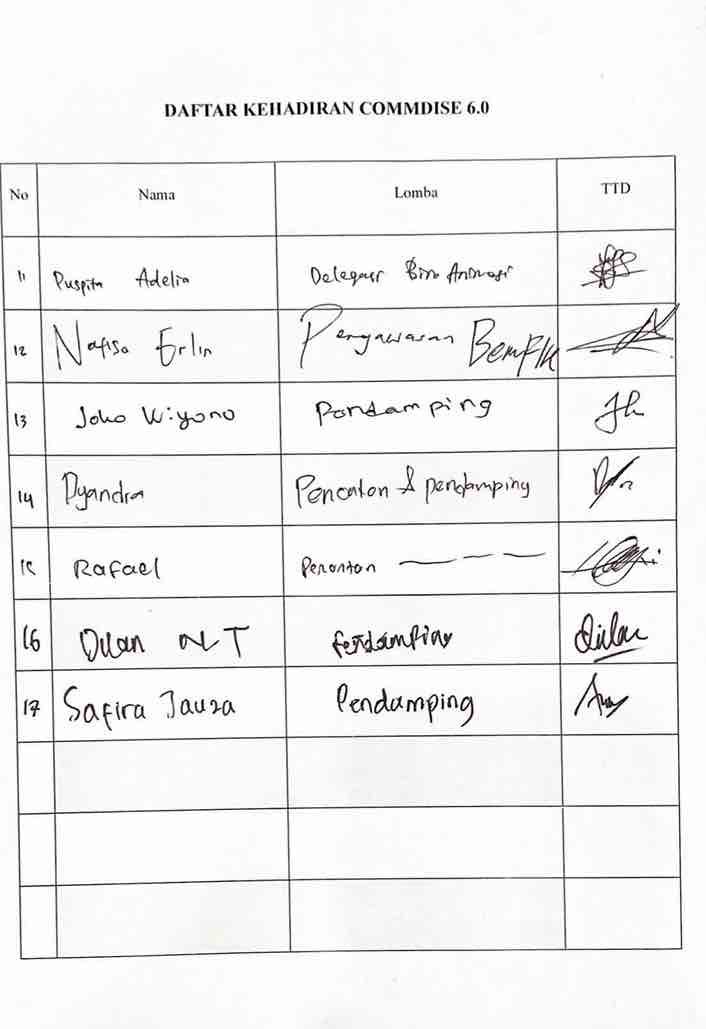 DAFTAR KEHADIRAN COMMDISE 6.0
No Nama Lomba TTD
11 Puspita Adelia Delegasi Biro Animasi
12 Nafisa Erlin Pengawasan BEMFIK
13 Joko Wiyono Pendamping
14 Dyandra Penonton & pendamping
15 Rafael Penonton
16 NLT Pendamping
17 Safira Jauza Pendamping